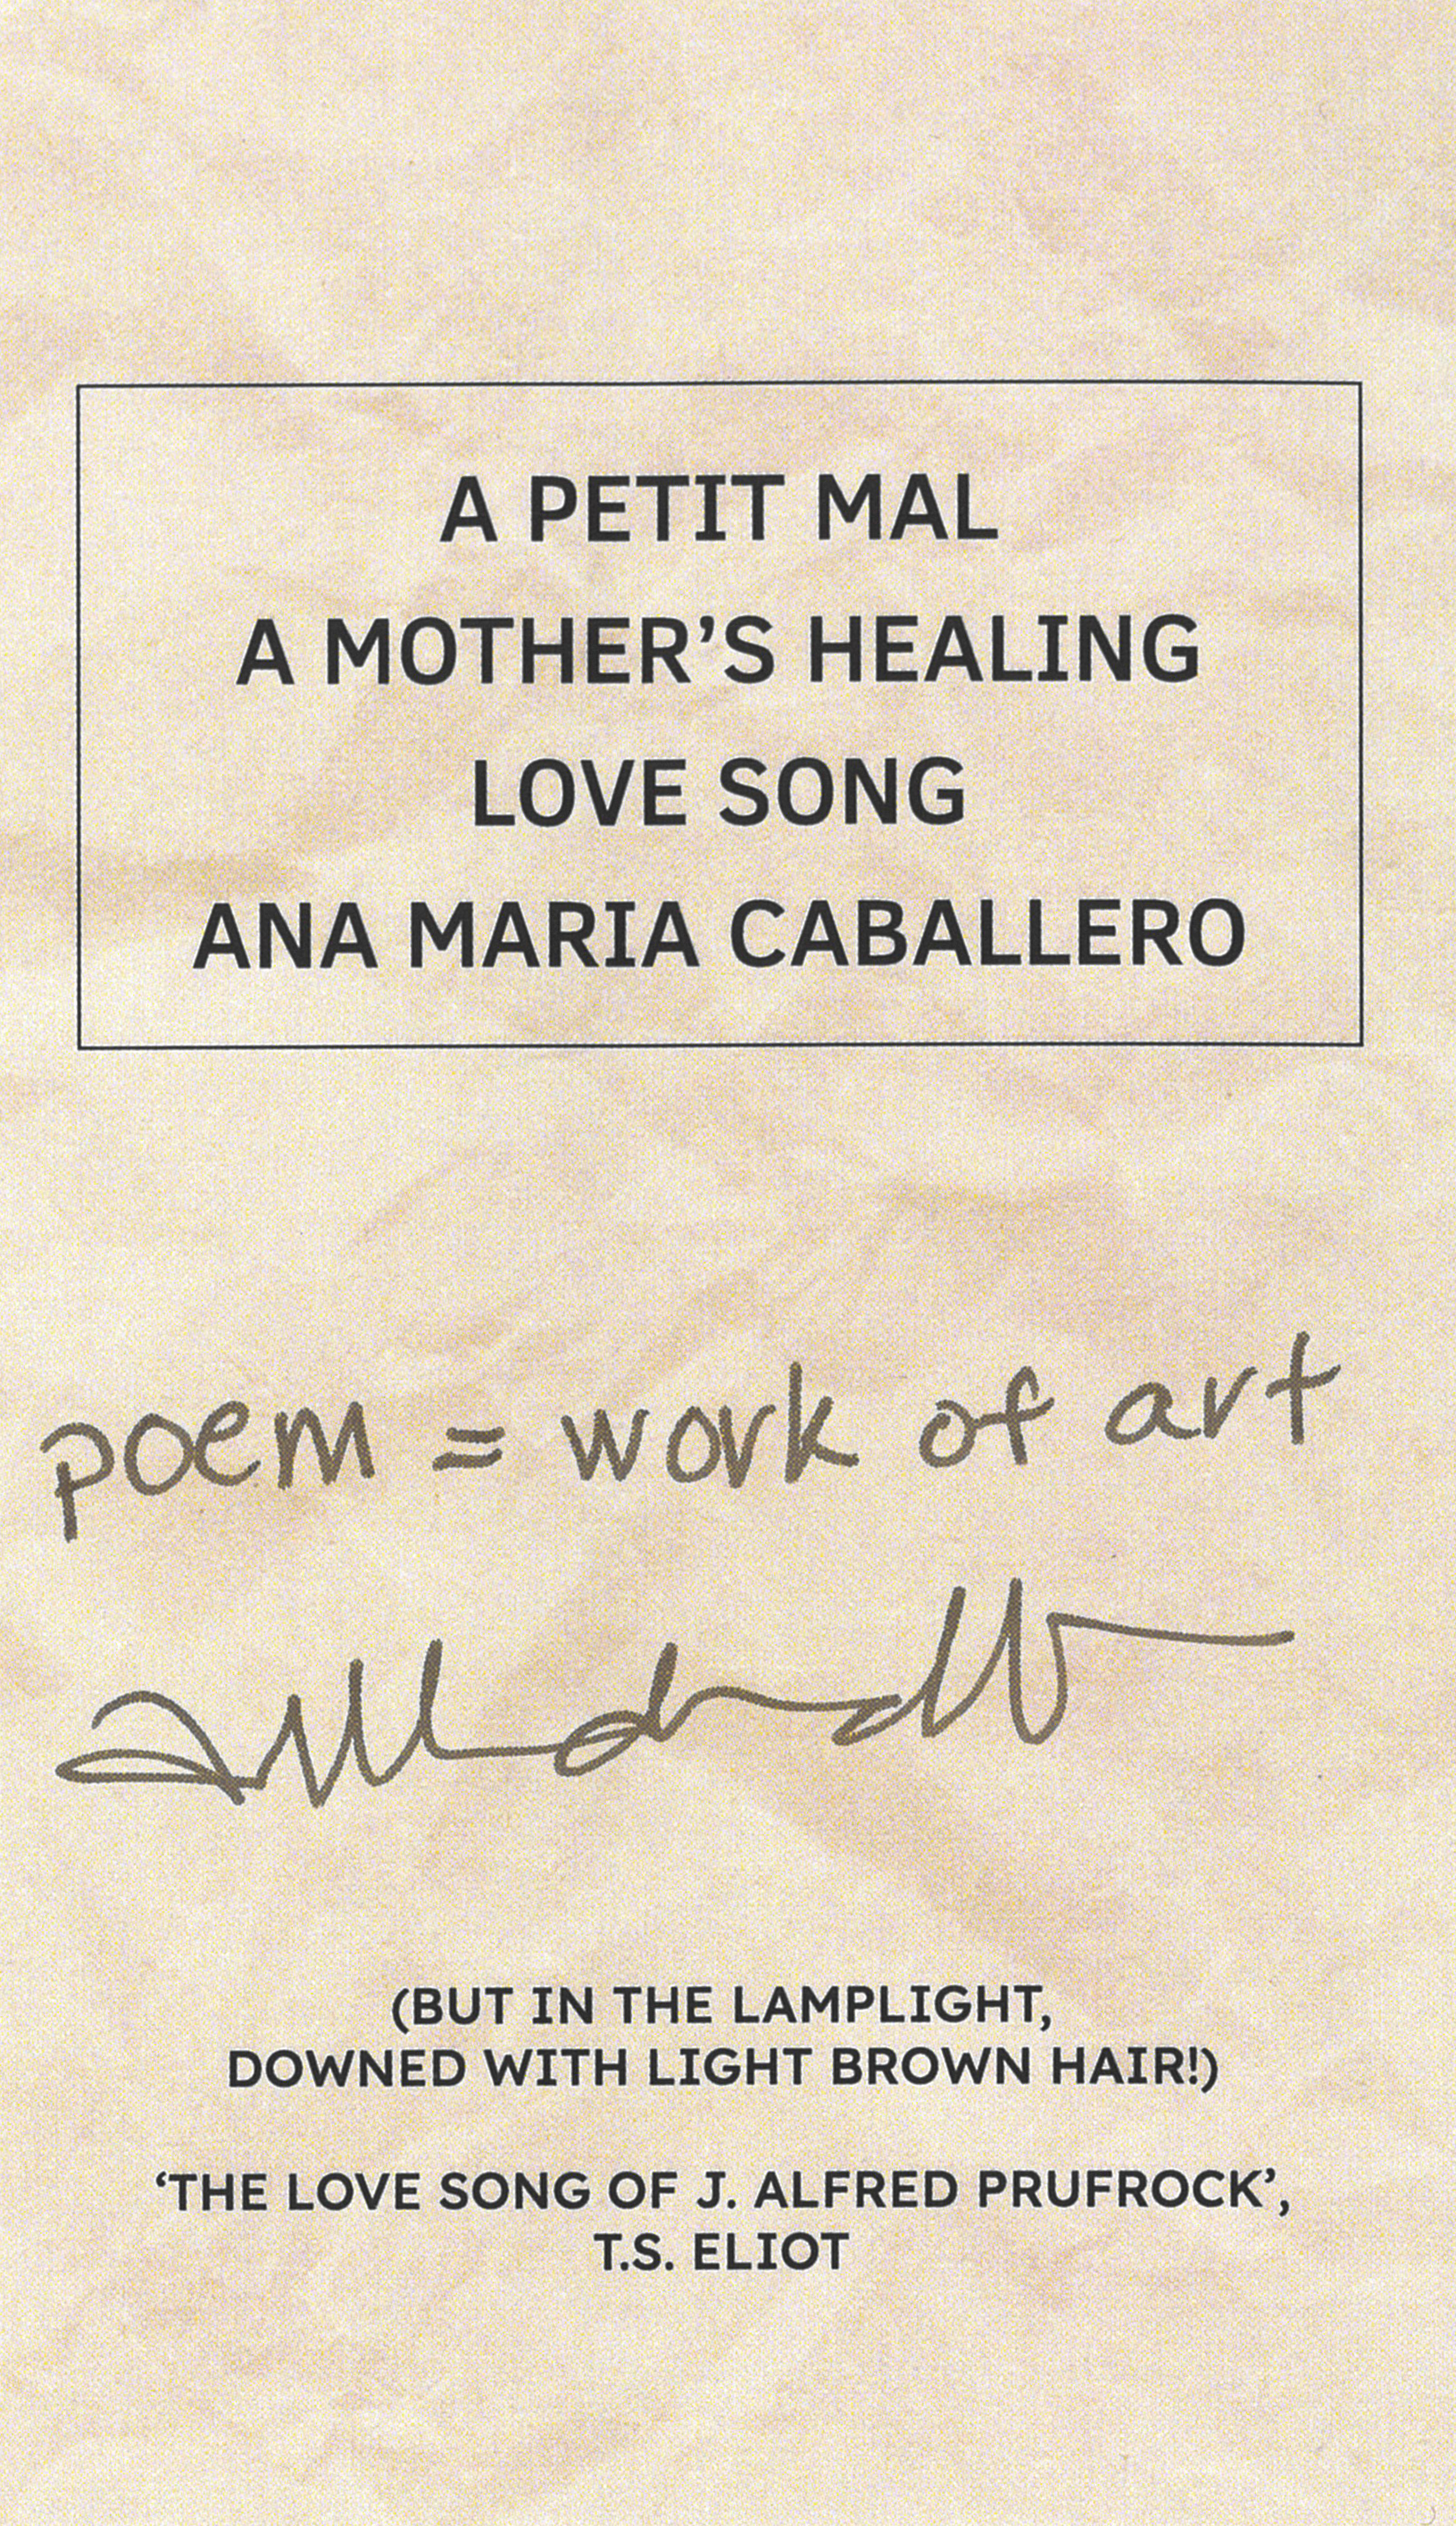 A PETIT MAL
A MOTHER’S HEALING
LOVE SONG
ANA MARIA CABALLERO
poem = work of art
(BUT IN THE LAMPLIGHT,
DOWNED WITH LIGHT BROWN HAIR!)
‘THE LOVE SONG OF J. ALFRED PRUFROCK’,
T.S. ELIOT